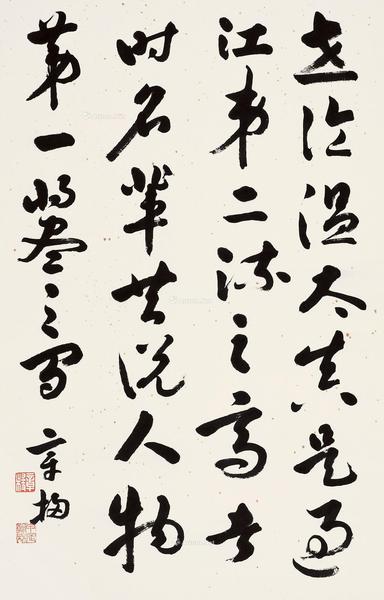 世论温太真是过
江第二流之高者
时名辈共说人物
第一将尽之间 章梫